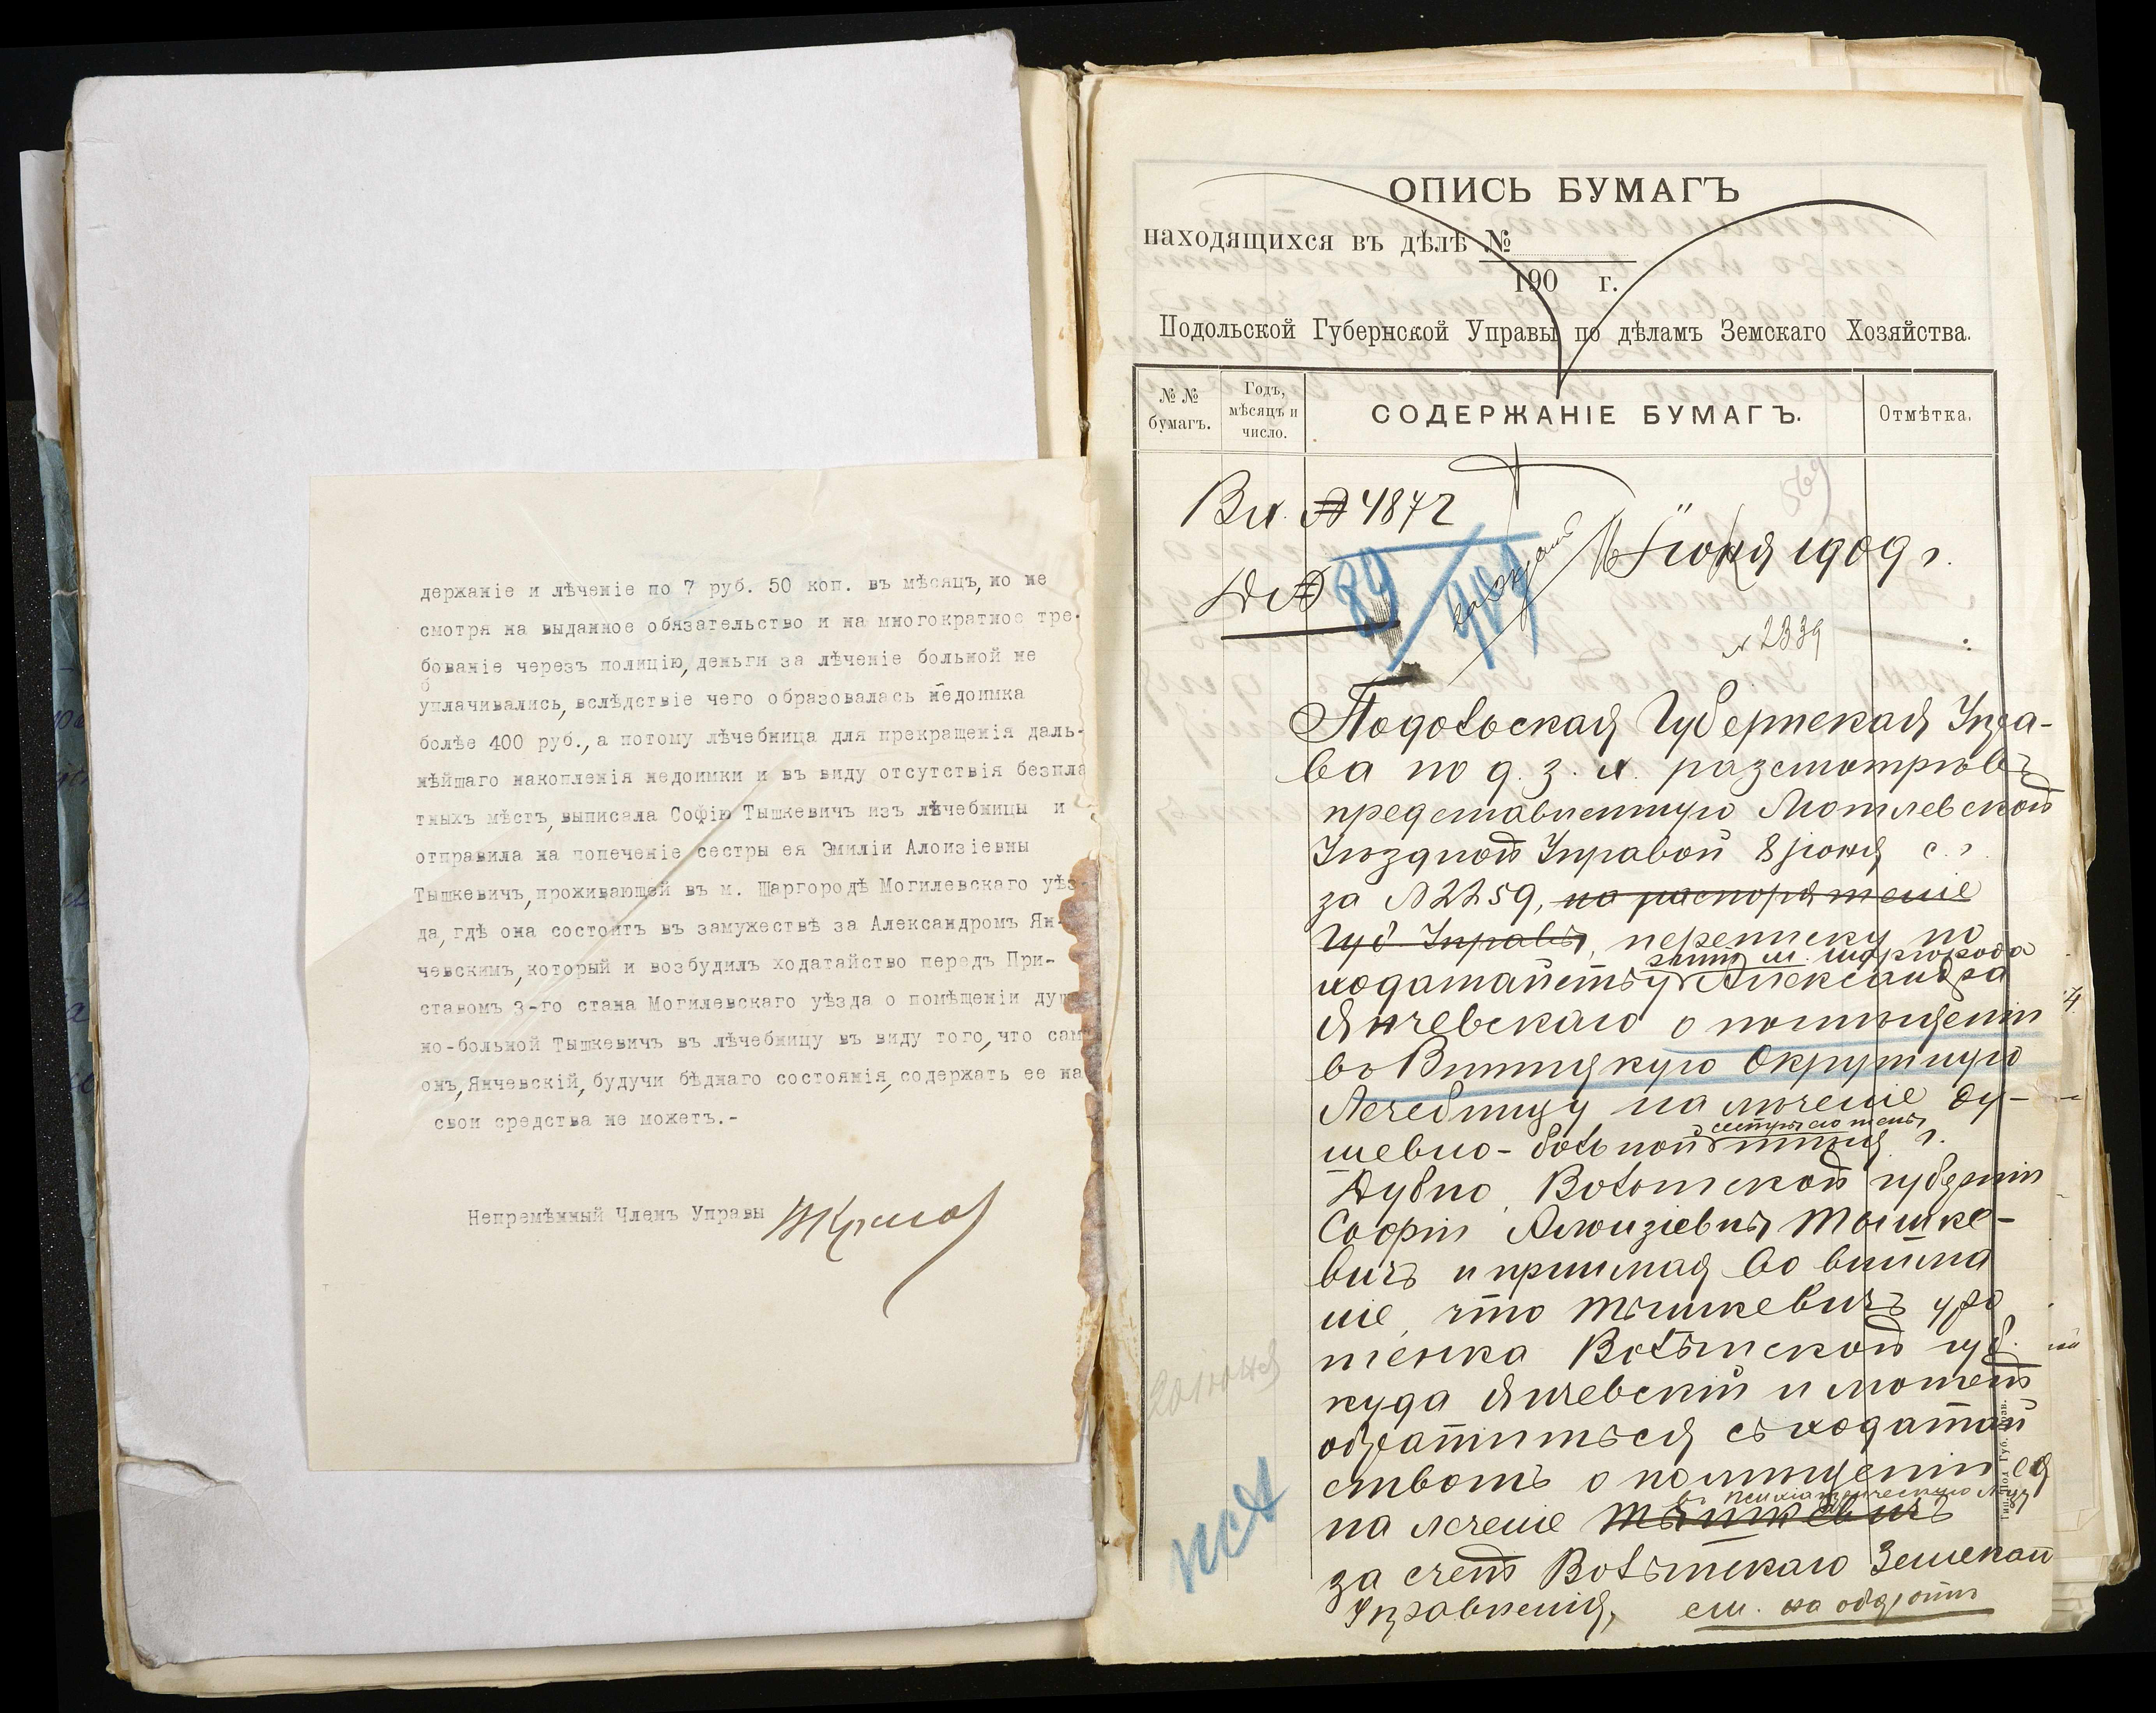 держаніе и лѣченіе по 7 руб. 50 коп. въ мѣсяцъ, но не
смотря на выданное обязательство и на многократное тре-
бованіе черезъ полицію, деньги за лѣченіе больной не
уплачивались, вслѣдствіе чего образовалась недоимка
болѣе 400 руб., а потому лѣчебница для прекращенія даль-
нѣйшаго накопленія недоимки и въ виду отсутствія безпла
тныхъ мѣстъ, выписала Софію Тышкевичъ изъ лѣчебницы и
отправила на попеченіе сестры ея Эмиліи Алоизіевны
Тышкевичъ, проживающей въ м. Шаргородѣ Могилевскаго уѣз-
да, гдѣ она состоитъ въ замужествѣ за Александромъ Ян-
чевскимъ, который и возбудилъ ходатайство передъ При-
ставомъ 3-го стана Могилевскаго уѣзда о помѣщеніи душ
но-больной Тышкевичъ въ лѣчебницу въ виду того, что сам
онъ, Янчевскій, будучи бѣднаго состоянія, содержать ее на
свои средства не можетъ.-
Непремѣнный Членъ Управы
ОПИСЬ БУМАГЪ
находящихся въ дѣлѣ №
190 г.
Подольской Губернской Управы по дѣламъ Земскаго Хозяйства.
№ № бумагъ.
Годъ, мѣсяцъ и число.
СОДЕРЖАНІЕ БУМАГЪ.
Отмѣтка.
569
Вх. № 4872
16 Іюня 1909 г.
Д № 89/909
№ 2339
Подольская Губернская Упра-
ва по д. з. х. разсмотрѣвъ
представленную Могилевской
Уѣздной Управой 8 іюня с. г.
за № 2259, на распоряженіе
Губ Управы, переписку по
жит. м. Шаргорода
ходатайству Александра
Янчевскаго о помѣщеніи
въ Винницкую Окружную
Лечебницу на леченіе ду-
сестры его жены
шевно-больной г.
Дубно, Волынской губерніи
Софіи Алоизіевны Тышке-
вичъ и принимая во внима
ніе, что Тышкевичъ уро
женка Волынской губ.
куда Янчевскій и можетъ
обратиться съ ходатай
ствомъ о помѣщеніи ея
въ психіатрическую лѣч
на леченіе Тышкевичъ
за счетъ Волынскаго Земскаго
Управленія, см. на оборотѣ
20 іюня
исп